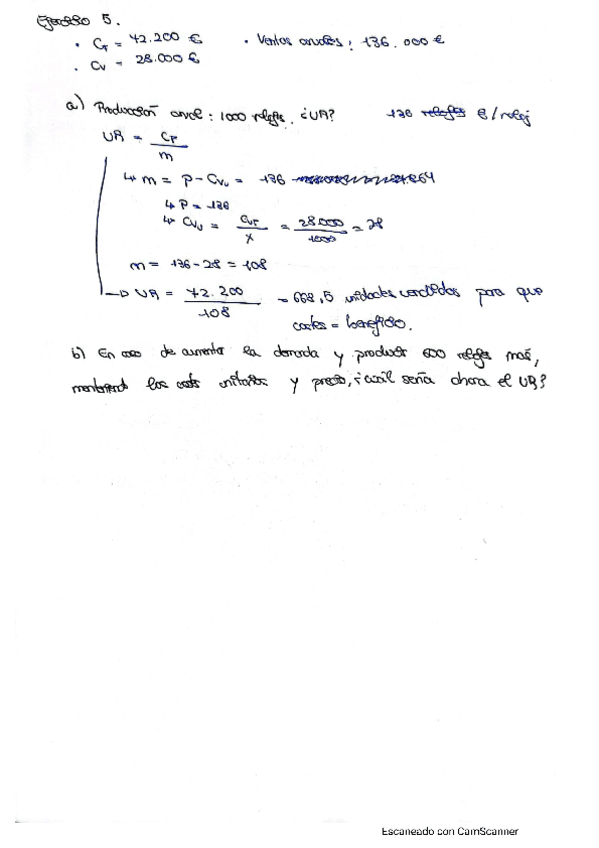 Ejercicio 5.
· CF = 72.200 € · Ventas anuales: 136.000 €
· CV = 28.000 €
a) Producción anual: 1000 relojes. ¿UR? 136 relojes €/reloj
UR = CF / m
↳ m = p - CVu = 136
↳ P = 136
↳ CVu = CVT / X = 28.000 / 1000 = 28
m = 136 - 28 = 108
→ UR = 72.200 / 108 = 668,5 unidades vendidas para que
costes = beneficio.
b) En caso de aumentar la demanda y producir 600 relojes más,
manteniendo los costes unitarios y precio, ¿cuál sería ahora el UR?
Escaneado con CamScanner